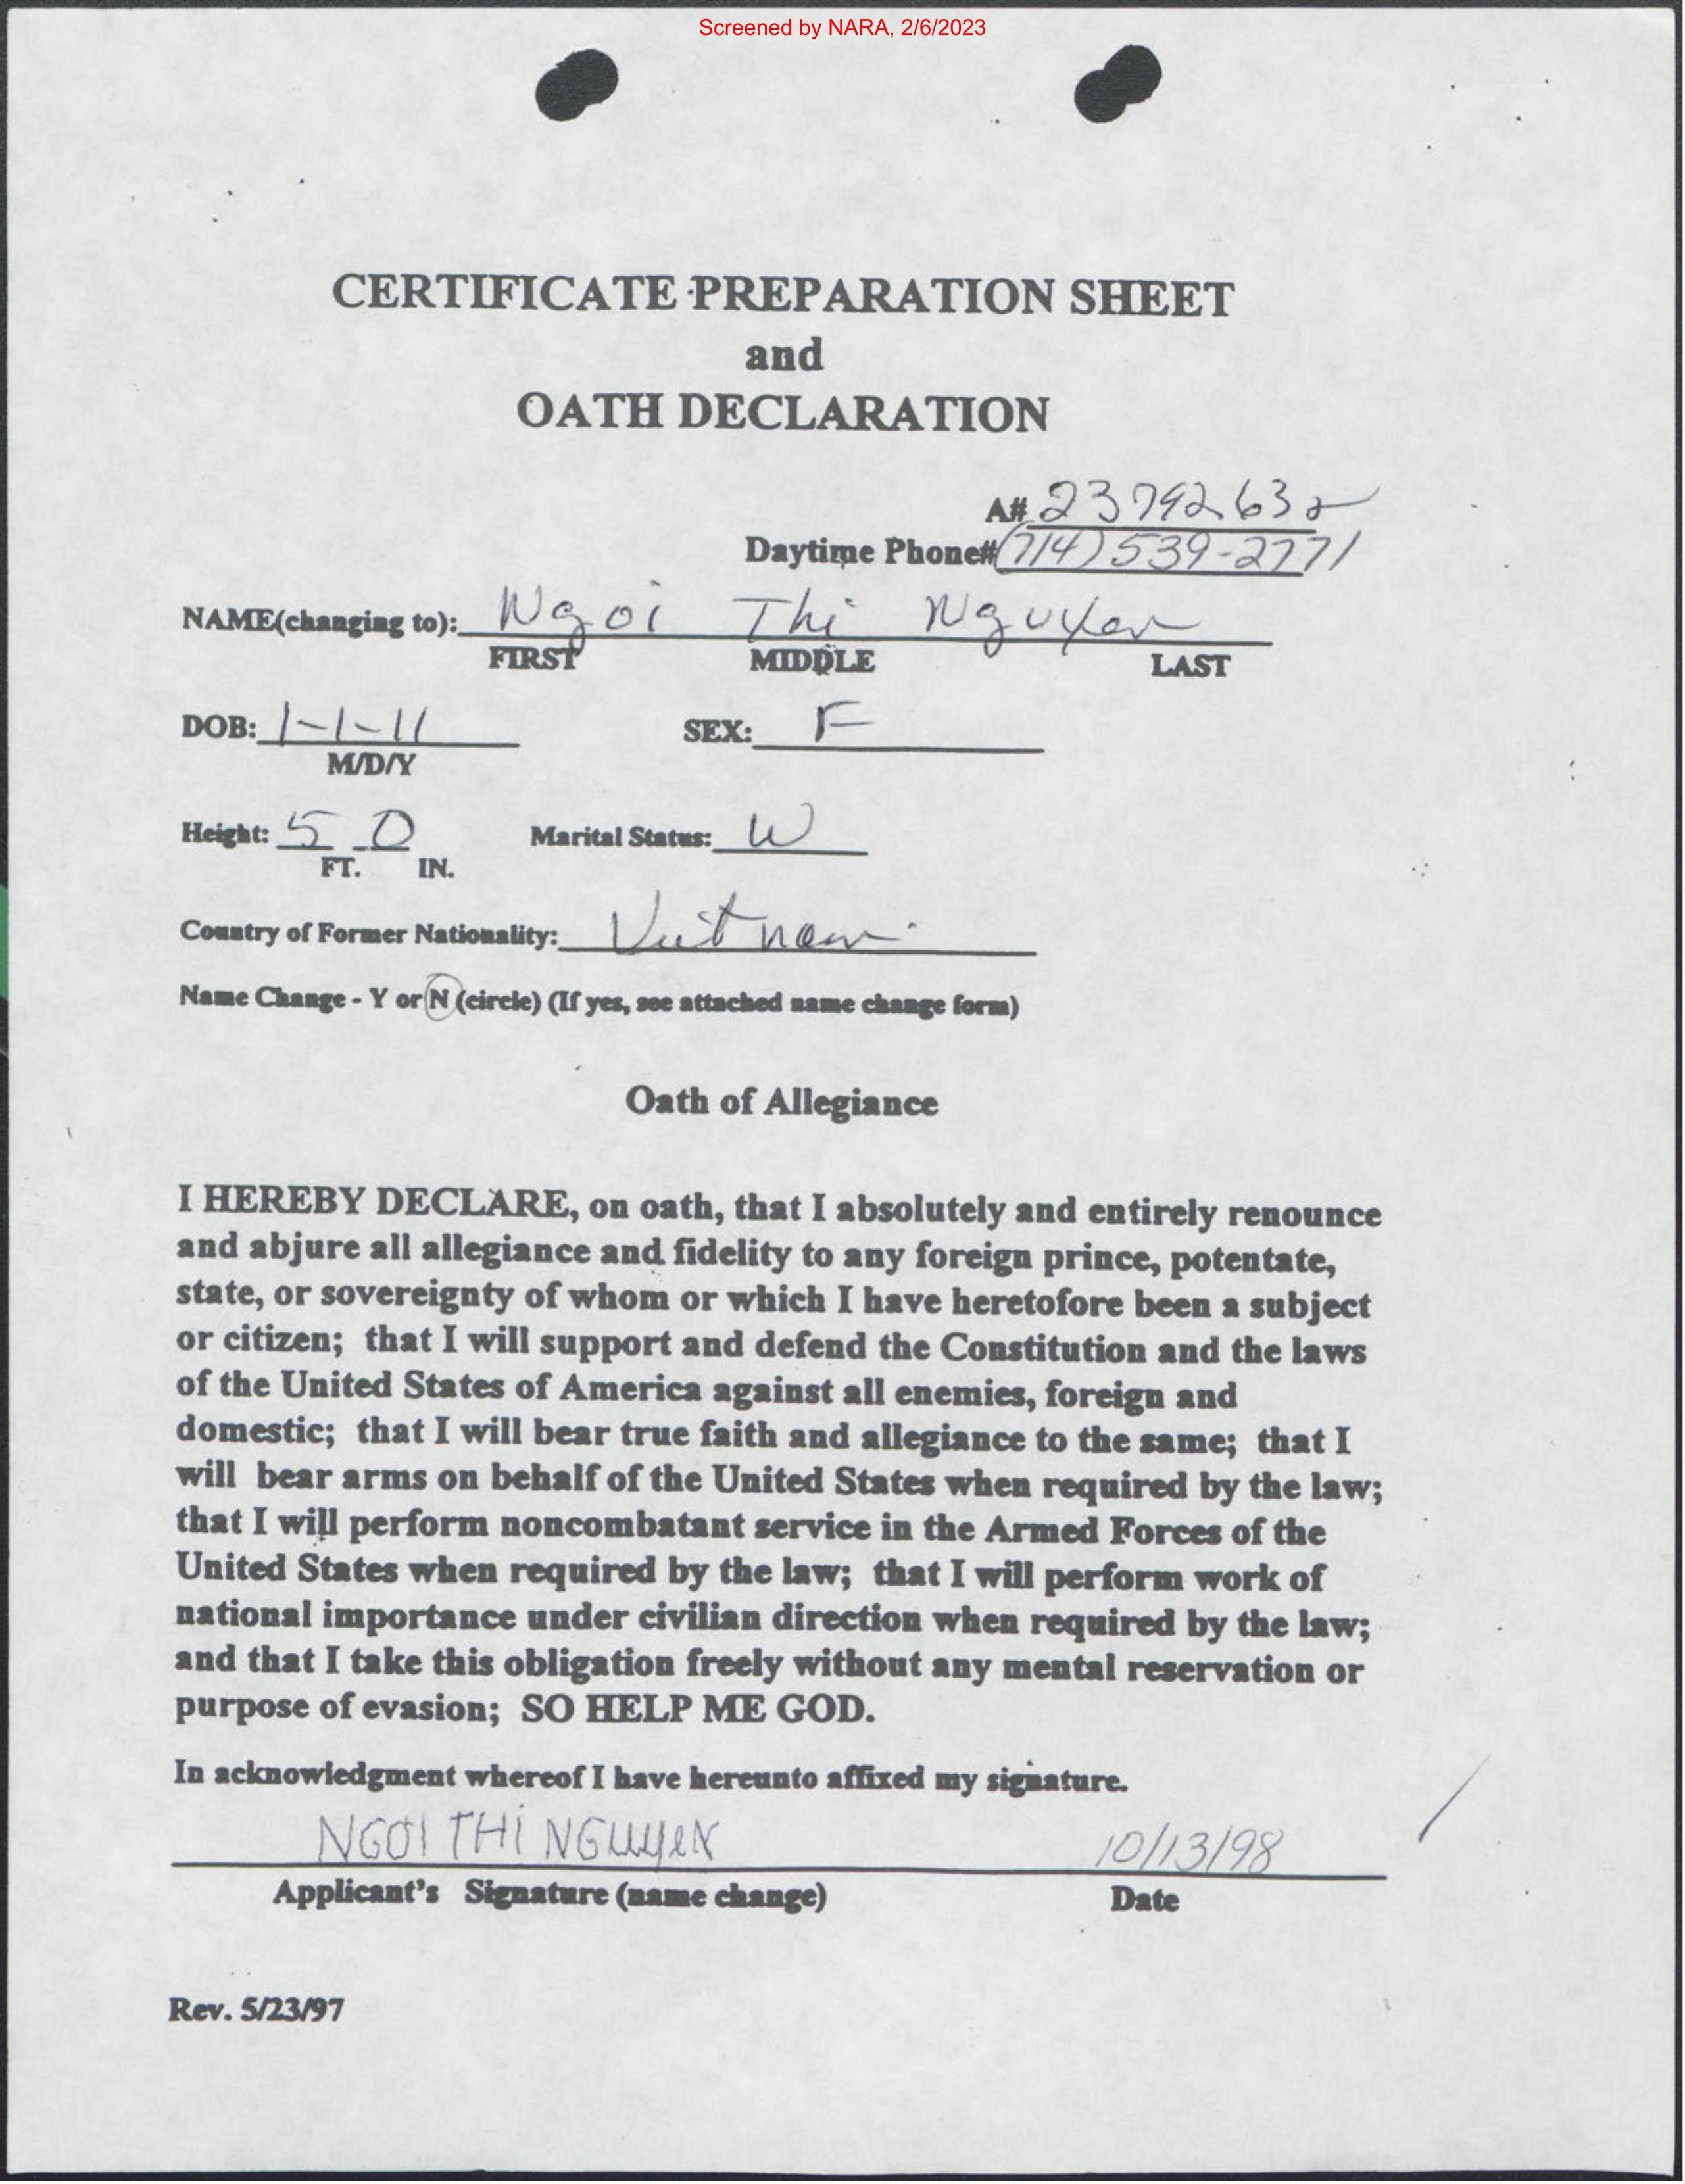 Screened by NARA, 2/6/2023
CERTIFICATE PREPARATION SHEET
and
OATH DECLARATION
A# 23792632
Daytime Phone# (714) 539-2771
NAME(changing to): Ngoi Thi Nguyen
FIRST MIDDLE LAST
DOB: 1-1-11 SEX: F
M/D/Y
Height: 5 0 Marital Status: W
FT. IN.
Country of Former Nationality: Vietnam
Name Change - Y or N (circle) (If yes, see attached name change form)
Oath of Allegiance
I HEREBY DECLARE, on oath, that I absolutely and entirely renounce
and abjure all allegiance and fidelity to any foreign prince, potentate,
state, or sovereignty of whom or which I have heretofore been a subject
or citizen; that I will support and defend the Constitution and the laws
of the United States of America against all enemies, foreign and
domestic; that I will bear true faith and allegiance to the same; that I
will bear arms on behalf of the United States when required by the law;
that I will perform noncombatant service in the Armed Forces of the
United States when required by the law; that I will perform work of
national importance under civilian direction when required by the law;
and that I take this obligation freely without any mental reservation or
purpose of evasion; SO HELP ME GOD.
In acknowledgment whereof I have hereunto affixed my signature.
NGOI THI NGUYEN 10/13/98
Applicant's Signature (name change) Date
Rev. 5/23/97